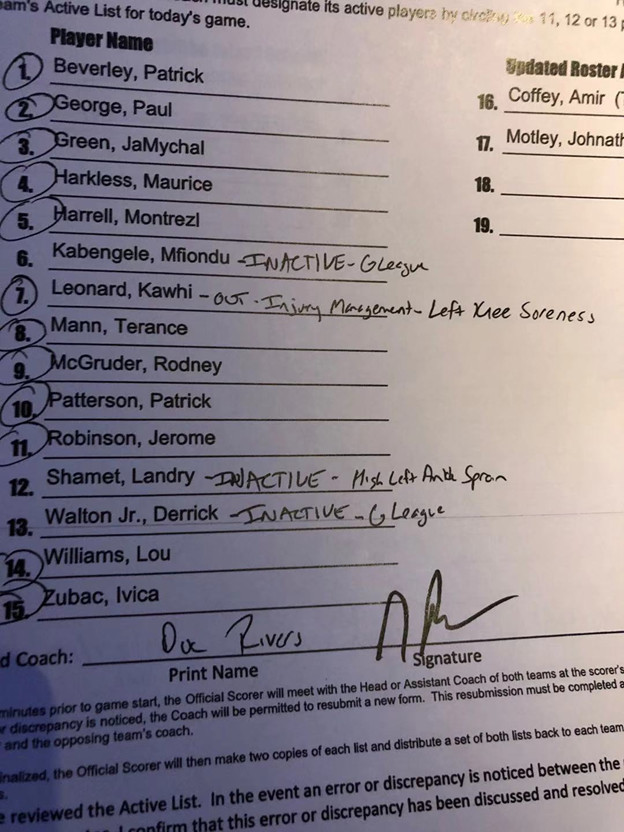 eam's Active List for today's game. must designate its active players by circling 11, 12 or 13 p
Player Name
1. Beverley, Patrick
2. George, Paul
3. Green, JaMychal
4. Harkless, Maurice
5. Harrell, Montrezl
6. Kabengele, Mfiondu -INACTIVE- G League
7. Leonard, Kawhi - OUT - Injury Management - Left Knee Soreness
8. Mann, Terance
9. McGruder, Rodney
10. Patterson, Patrick
11. Robinson, Jerome
12. Shamet, Landry -INACTIVE - High Left Ankle Sprain
13. Walton Jr., Derrick -INACTIVE - G League
14. Williams, Lou
15. Zubac, Ivica
Updated Roster
16. Coffey, Amir (
17. Motley, Johnath
18.
19.
d Coach: Doc Rivers
Print Name
Signature
minutes prior to game start, the Official Scorer will meet with the Head or Assistant Coach of both teams at the scorer's
r discrepancy is noticed, the Coach will be permitted to resubmit a new form. This resubmission must be completed a
and the opposing team's coach.
inalized, the Official Scorer will then make two copies of each list and distribute a set of both lists back to each team
s.
e reviewed the Active List. In the event an error or discrepancy is noticed between the
I confirm that this error or discrepancy has been discussed and resolved